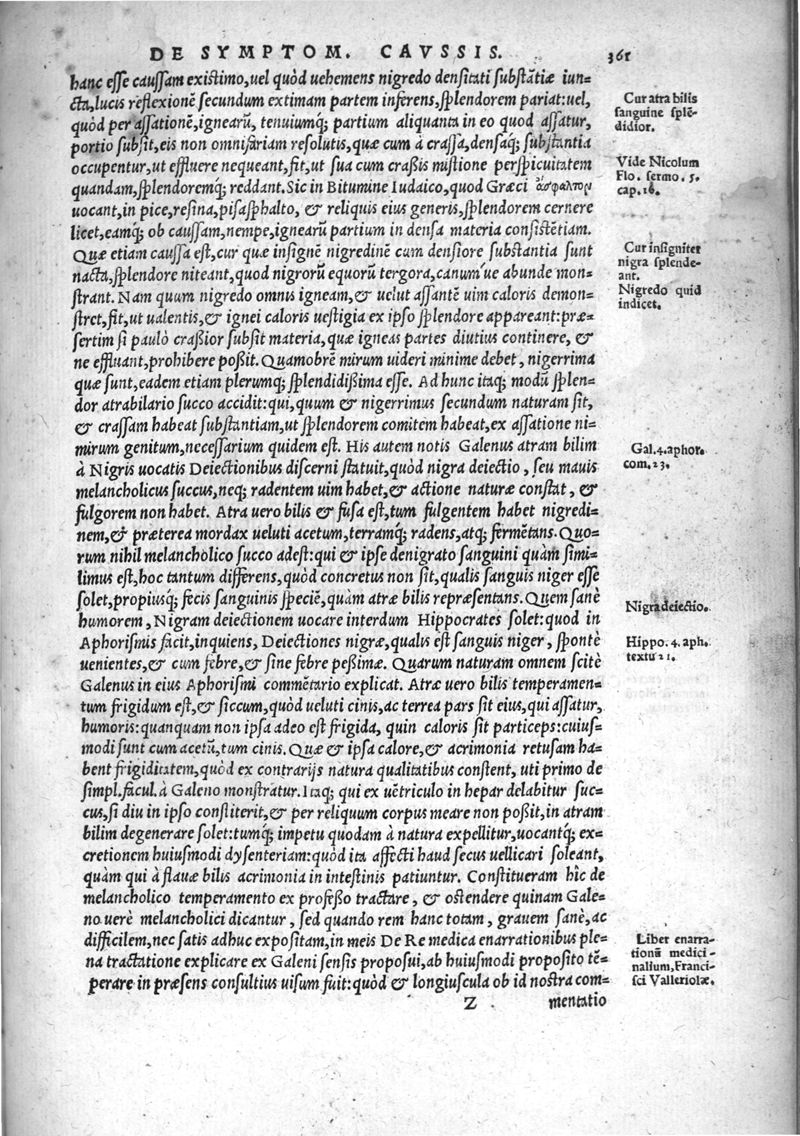 DE SYMPTOM. CAVSSIS. 361
hanc esse caussam existimo, uel quòd uehemens nigredo densitati substãtiæ iun-
cta, lucis reflexionẽ secundum extimam partem inferens, splendorem pariat: uel,
quòd per assationẽ, ignearũ, tenuiumq́; partium aliquanta in eo quod assatur,
portio subsit, eis non omnifariam resolutis, quæ cum à crassa, densaq́; substantia
occupentur, ut effluere nequeant, fit, ut sua cum crassis mistione perspicuitatem
quandam, splendoremq́; reddant. Sic in Bitumine Iudaico, quod Græci ἄσφαλτον
uocant, in pice, resina, pisasphalto, & reliquis eius generis, splendorem cernere
licet, eamq́; ob caussam, nempe, ignearũ partium in densa materia consistẽtiam.
Quæ etiam caussa est, cur quæ insignẽ nigredinẽ cum densiore substantia sunt
nacta, splendore niteant, quod nigrorũ equorũ tergora, canum ue abunde mon-
strant. Nam quum nigredo omnis igneam, & uelut assantẽ uim caloris demon-
stret, fit, ut ualentis, & ignei caloris uestigia ex ipso splendore appareant: præ-
sertim si paulò crassior subsit materia, quæ igneas partes diutius continere, &
ne effluant, prohibere possit. Quamobrẽ mirum uideri minime debet, nigerrima
quæ sunt, eadem etiam plerumq́; splendidissima esse. Ad hunc itaq́; modũ splen-
dor atrabilario succo accidit: qui, quum & nigerrimus secundum naturam sit,
& crassam habeat substantiam, ut splendorem comitem habeat, ex assatione ni-
mirum genitum, necessarium quidem est. His autem notis Galenus atram bilim
à Nigris uocatis Deiectionibus discerni statuit, quòd nigra deiectio, seu mauis
melancholicus succus, neq́; radentem uim habet, & actione naturæ constat, &
fulgorem non habet. Atra uero bilis & fusa est, tum fulgentem habet nigredi-
nem, & præterea mordax ueluti acetum, terramq́; radens, atq́; fermẽtans. Quo-
rum nihil melancholico succo adest: qui & ipse denigrato sanguini quàm simi-
limus est, hoc tantum differens, quòd concretus non sit, qualis sanguis niger esse
solet, propiusq́; fecis sanguinis speciẽ, quàm atræ bilis repræsentans. Quem sanè
humorem, Nigram deiectionem uocare interdum Hippocrates solet: quod in
Aphorismis facit, inquiens, Deiectiones nigræ, qualis est sanguis niger, spontè
uenientes, & cum febre, & sine febre pessimæ. Quarum naturam omnem scitè
Galenus in eius Aphorismi commẽtario explicat. Atræ uero bilis temperamen-
tum frigidum est, & siccum, quòd ueluti cinis, ac terrea pars sit eius, qui assatur,
humoris: quanquam non ipsa adeo est frigida, quin caloris sit particeps: cuius-
modi sunt cum acetũ, tum cinis. Quæ & ipsa calore, & acrimonia retusam ha-
bent frigiditatem, quòd ex contrarijs natura qualitatibus constent, uti primo de
simpl. facul. à Galeno monstratur. Itaq́; qui ex uẽtriculo in hepar delabitur suc-
cus, si diu in ipso constiterit, & per reliquum corpus meare non possit, in atram
bilim degenerare solet: tumq́; impetu quodam à natura expellitur, uocantq́; ex-
cretionem huiusmodi dysenteriam: quòd ita affecti haud secus uellicari soleant,
quàm qui à flauæ bilis acrimonia in intestinis patiuntur. Constitueram hîc de
melancholico temperamento ex professo tractare, & ostendere quinam Gale-
no uerè melancholici dicantur, sed quando rem hanc totam, grauem sanè, ac
difficilem, nec satis adhuc expositam, in meis De Re medica enarrationibus ple-
na tractatione explicare ex Galeni sensis proposui, ab huiusmodi proposito tẽ-
perare in præsens consultius uisum fuit: quòd & longiuscula ob id nostra com-
Z mentatio
Cur atra bilis
sanguine splẽ-
didior.
Vide Nicolum
Flo. sermo. 5.
cap. 16.
Cur insigniter
nigra splende-
ant.
Nigredo quid
indicet.
Gal. 4. aphor.
com. 23.
Nigra deiectio.
Hippo. 4. aph.
textu 21.
Liber enarra-
tionũ medici-
nalium, Franci-
sci Valleriolæ.